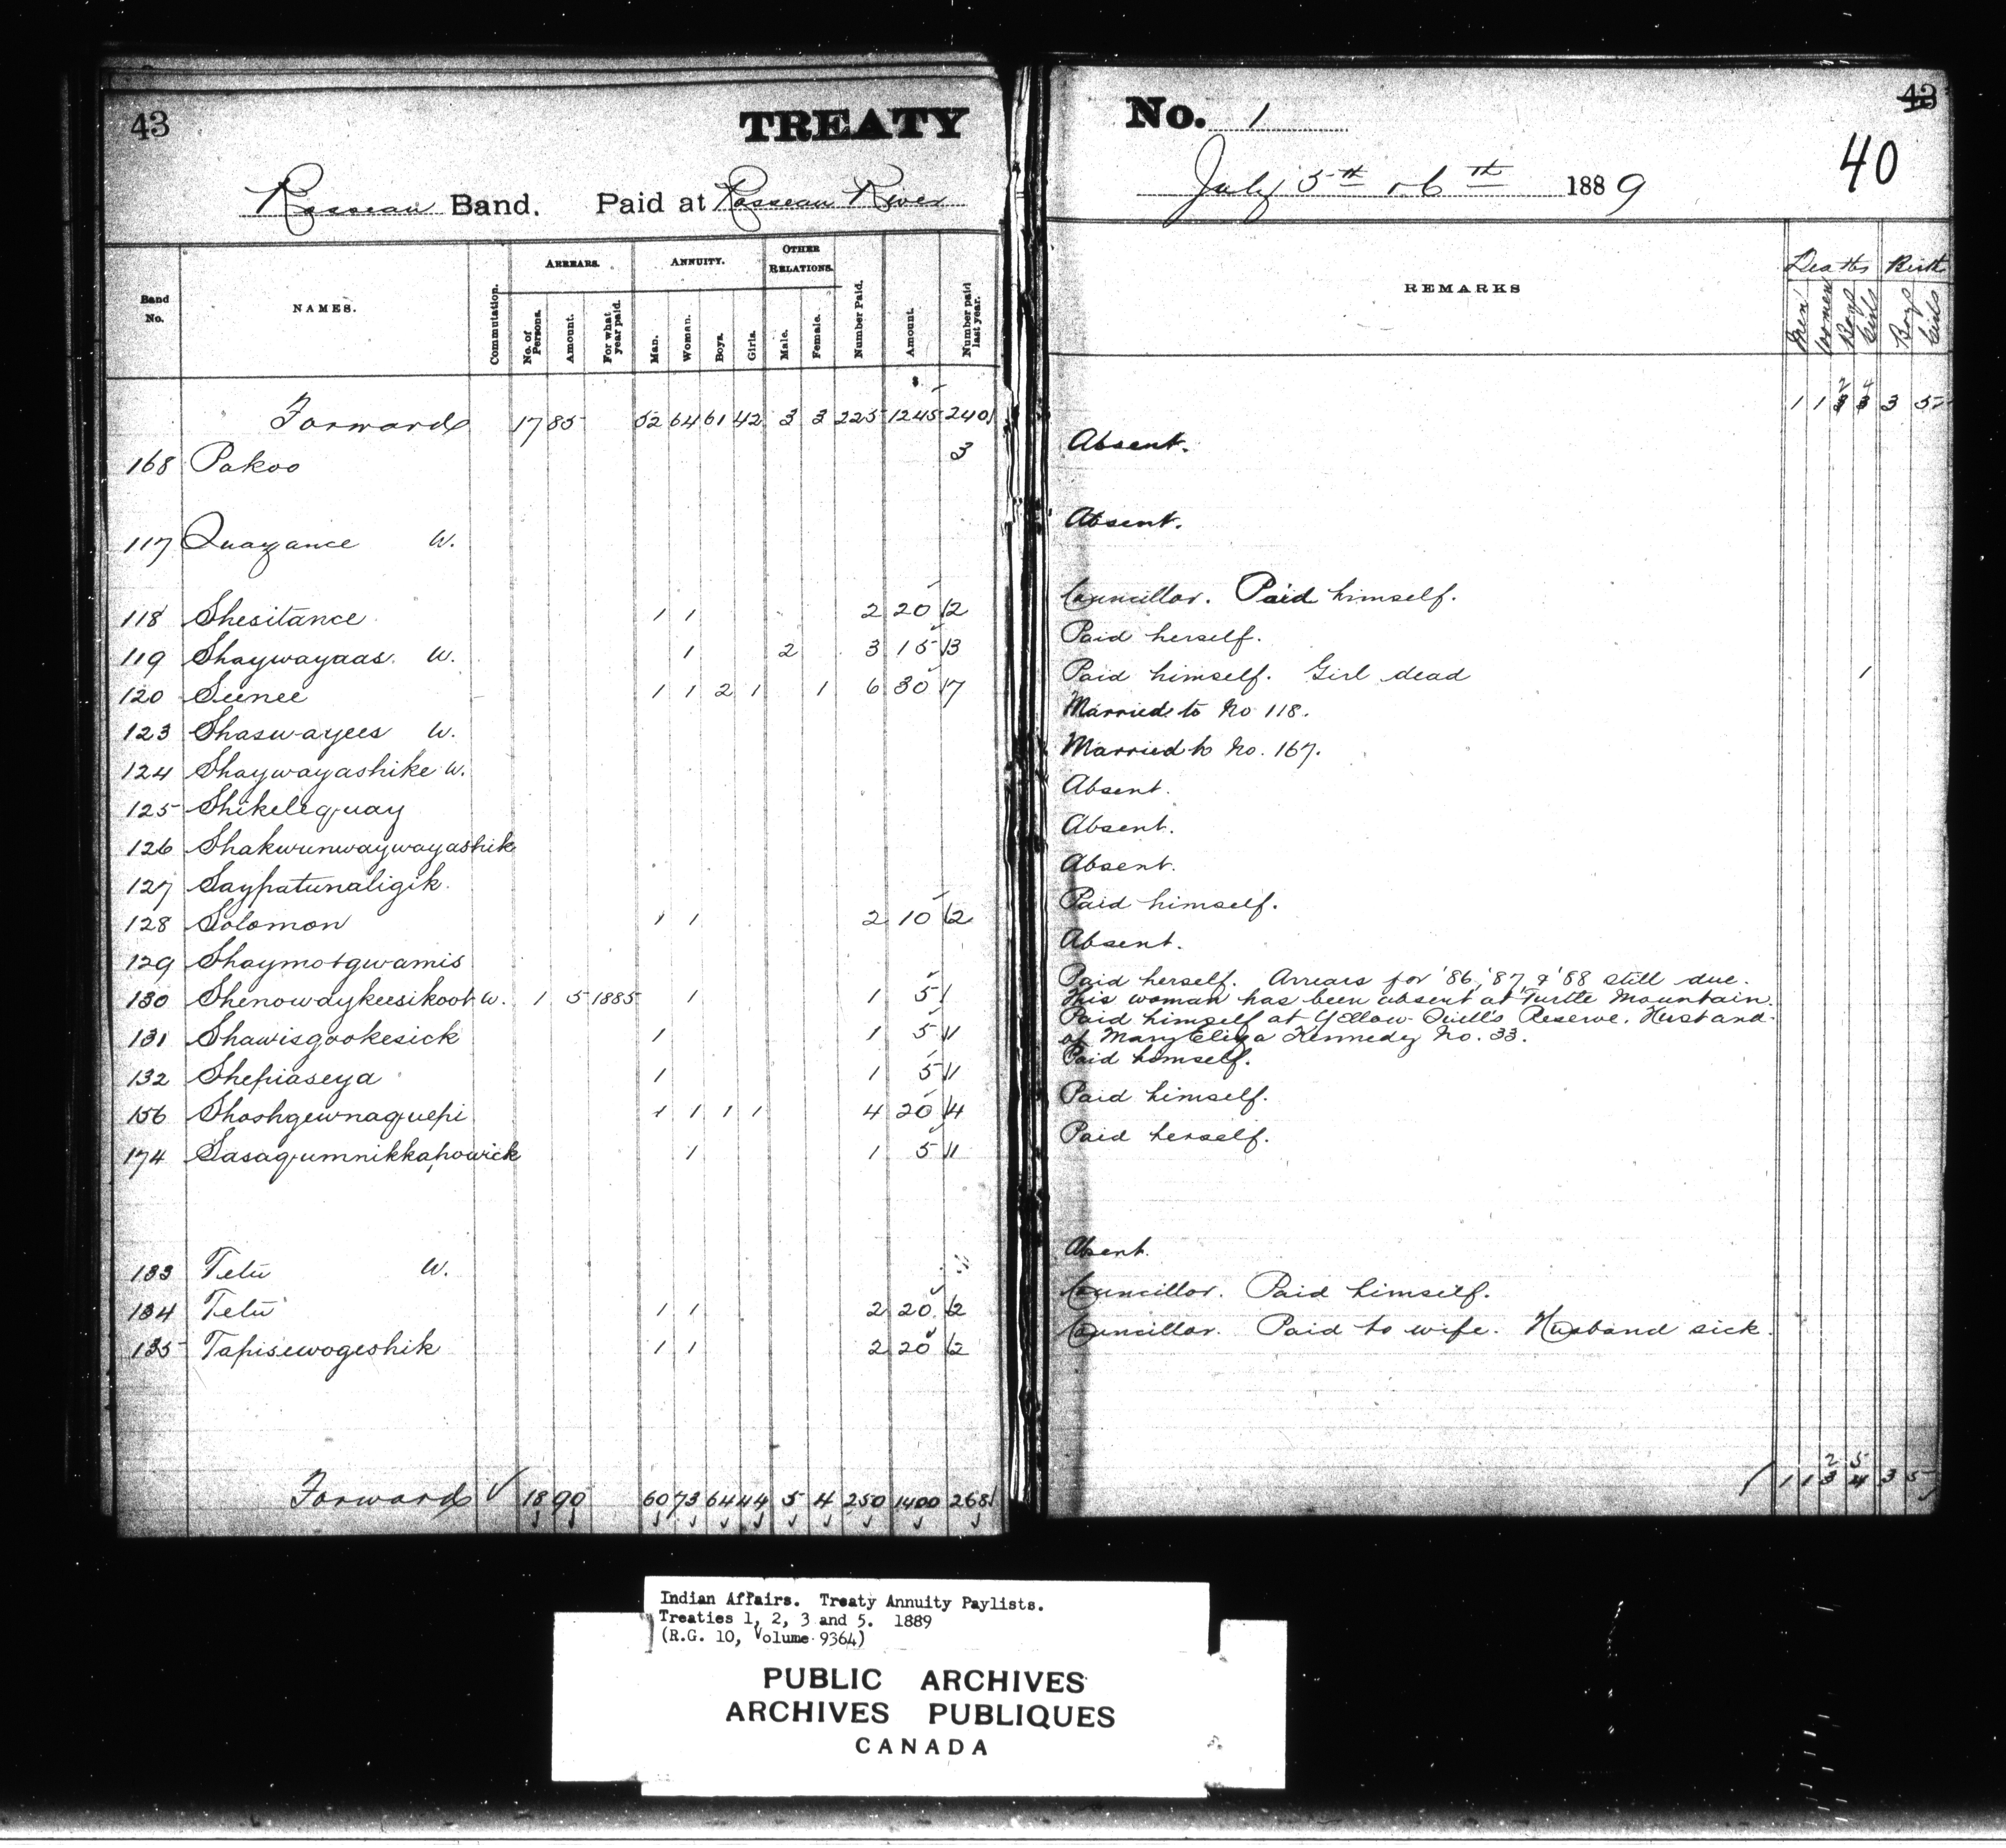 43 TREATY No. 1 43
40
Rosseau Band. Paid at Rosseau River July 5th & 6th 1889
Band No. NAMES. Commutation. ARREARS. No. of Persons. Amount. For what year paid. ANNUITY. Man. Woman. Boys. Girls. OTHER RELATIONS. Male. Female. Number Paid. Amount. Number paid last year. REMARKS Deaths Men Women Boys Girls Birth Boys Girls
$
Forward 17 85 52 64 61 42 3 3 225 1245 240 1 1 2 3 4 3 3 5
168 Pakoo 3 Absent.
117 Quayance W. Absent.
118 Shesitance 1 1 2 20 2 Councillor. Paid himself.
119 Shaywayaas. W. 1 2 3 15 3 Paid herself.
120 Seenee 1 1 2 1 1 6 30 7 Paid himself. Girl dead 1
123 Shaswayees W. Married to No 118.
124 Shaywayashike W. Married to No. 167.
125 Shikelequay Absent.
126 Shakwunwaywayashik Absent.
127 Saypatunaligik. Absent.
128 Solomon 1 1 2 10 2 Paid himself.
129 Shaymotgwamis Absent.
130 Shenowaykeesikook W. 1 5 1885 1 1 5 Paid herself. Arrears for '86, '87, & '88 still due.
This woman has been absent at Turtle Mountain.
131 Shawisgookesick 1 1 5 1 Paid himself at Yellow Quill's Reserve. Husband
of Mary Eliza Kennedy No. 33.
132 Shepiaseya 1 1 5 1 Paid himself.
156 Shoshgewnaquepi 1 1 1 1 4 20 4 Paid himself.
174 Sasagumnikkapowick 1 1 5 1 Paid herself.
133 Tetu W. Absent.
134 Tetu 1 1 2 20 2 Councillor. Paid himself.
135 Tapisewogeshik 1 1 2 20 2 Councillor. Paid to wife. Husband sick.
Forward 18 90 60 73 64 44 5 4 250 1400 268 1 1 2 3 5 4 3 5
Indian Affairs. Treaty Annuity Paylists.
Treaties 1, 2, 3 and 5. 1889
(R.G. 10, Volume 9364)
PUBLIC ARCHIVES
ARCHIVES PUBLIQUES
CANADA